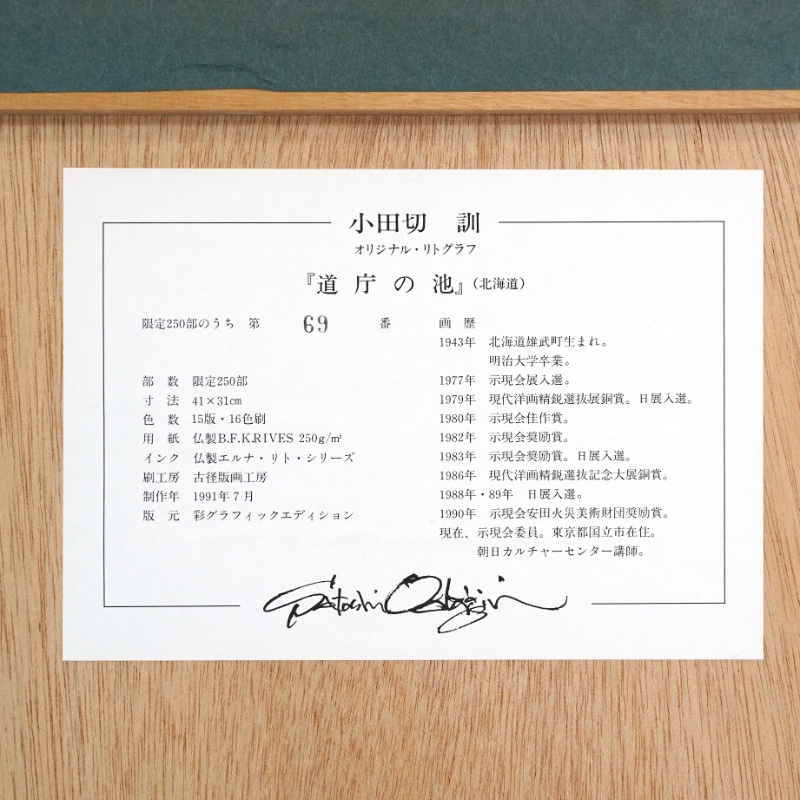 小田切　訓
オリジナル・リトグラフ
『道 庁 の 池』(北海道)
限定250部のうち　第　69　番
部　数　限定250部
寸　法　41×31㎝
色　数　15版・16色刷
用　紙　仏製B.F.K.RIVES 250g/㎡
インク　仏製エルナ・リト・シリーズ
刷工房　古径版画工房
制作年　1991年７月
版　元　彩グラフィックエディション
画　歴
1943年　北海道雄武町生まれ。
明治大学卒業。
1977年　示現会展入選。
1979年　現代洋画精鋭選抜展銅賞。日展入選。
1980年　示現会佳作賞。
1982年　示現会奨励賞。
1983年　示現会奨励賞。日展入選。
1986年　現代洋画精鋭選抜記念大展銅賞。
1988年・89年　日展入選。
1990年　示現会安田火災美術財団奨励賞。
現在、示現会委員。東京都国立市在住。
朝日カルチャーセンター講師。